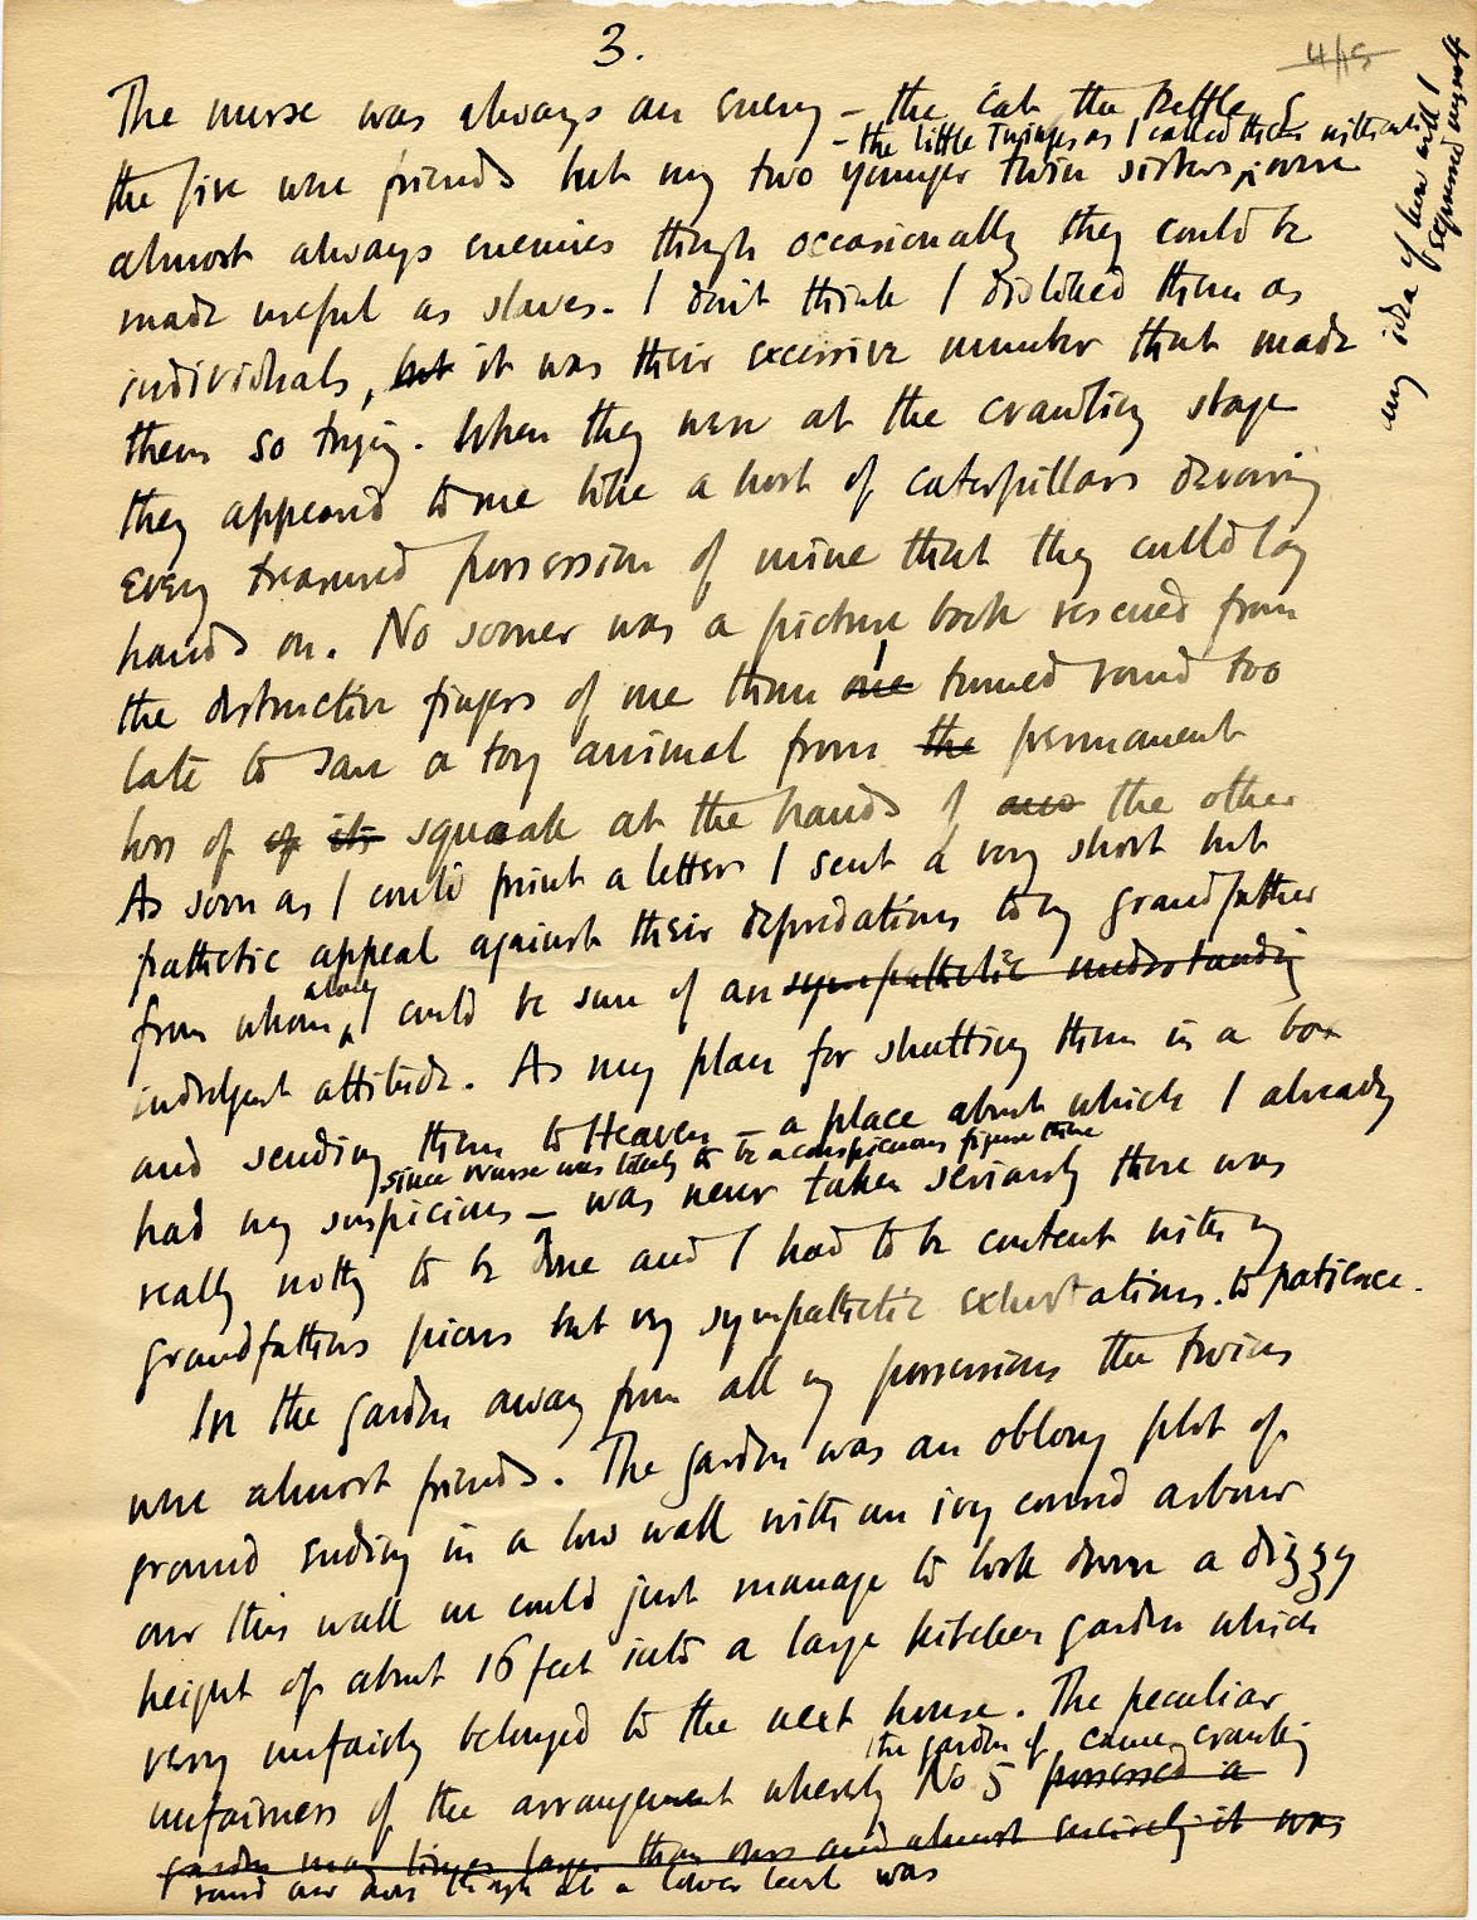 3.
4/15
The nurse was always an enemy – the cat the kettle &
– the little Twinges as I called them with
the fire were friends but my two younger twin sisters, were
my idea of how well I
expressed myself
almost always enemies though occasionally they could be
made useful as slaves. I don't think I disliked them as
individuals, but it was their excessive number that made
them so trying. When they were at the crawling stage
they appeared to me like a host of caterpillars devouring
every treasured possession of mine that they could lay
hands on. No sooner was a picture book rescued from
the destructive fingers of one than one I turned round too
late to save a toy animal from the permanent
loss of of its squeak at the hands of the other
As soon as I could print a letter I sent a very short but
pathetic appeal against their depredations to my grandfather
alone
from whom I could be sure of an sympathetic understanding
indulgent attitude. As my plan for shutting them in a box
and sending them to Heaven – a place about which I already
since Nurse was likely to be a conspicuous figure there
had my suspicions – was never taken seriously there was
really nothg to be done and I had to be content with my
grandfathers pious but very sympathetic exhortations. to patience.
In the garden away from all my possessions the twins
were almost friends. The garden was an oblong plot of
ground ending in a low wall with an ivy covered arbour
over this wall we could just manage to look down a dizzy
height of about 16 feet into a large kitchen garden which
very unfairly belonged to the next house. The peculiar
the garden of came crawling
unfairness of the arrangement whereby No 5 possessed a
garden many times larger than ours and almost entirely it was
round our own though at a lower level was